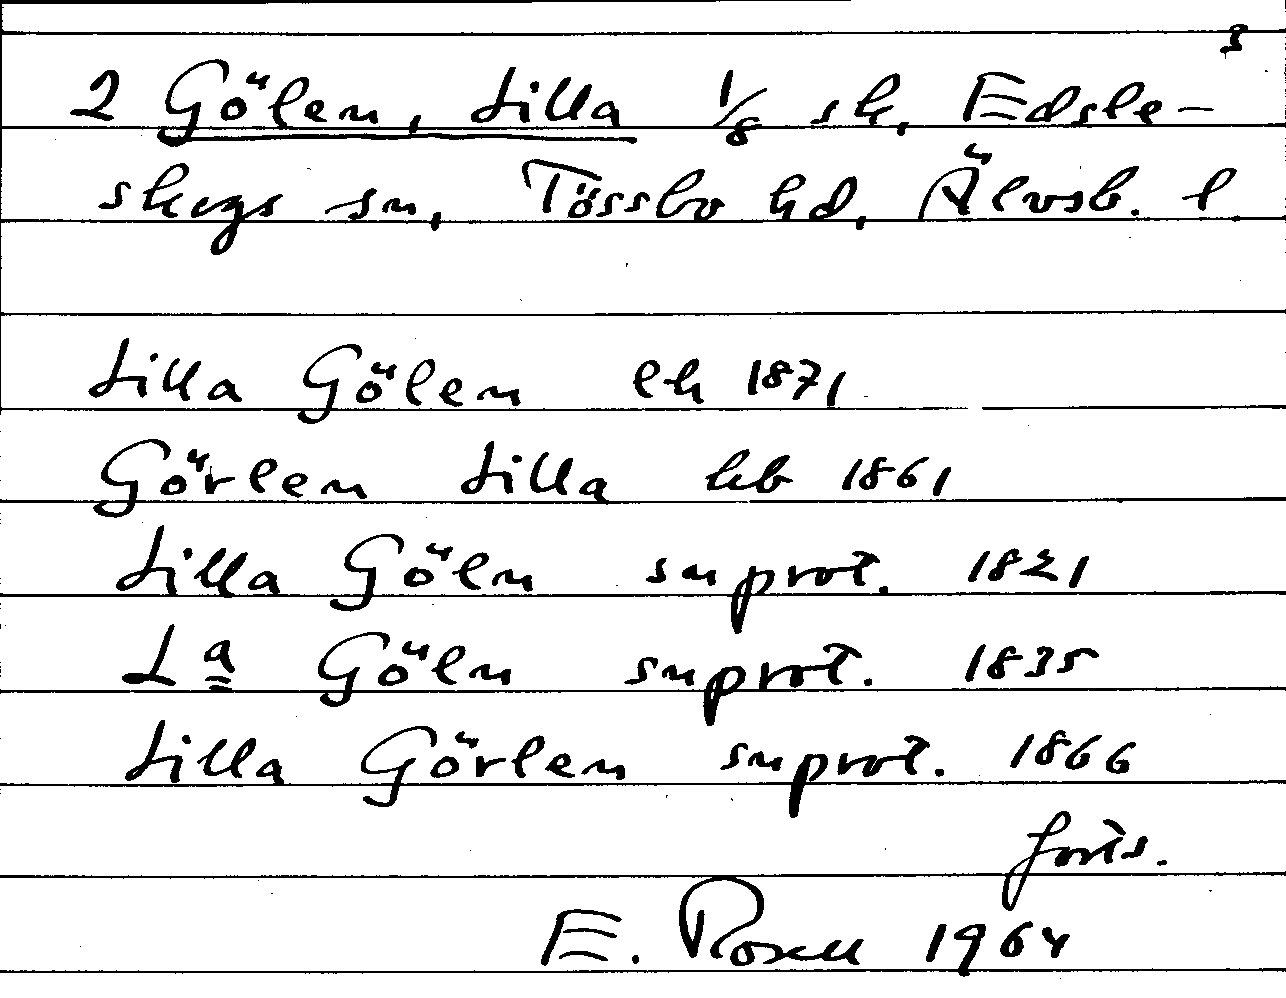 3
2 Gölen, Lilla 1/8 sk, Edsle-
skogs sn, Tössbo hd, Älvsb. l.
Lilla Gölen ek 1871
Görlen Lilla hb 1861
Lilla Göln snprot. 1821
La Göln snprot. 1835
Lilla Görlen snprot. 1866
forts.
E. Rosell 1964